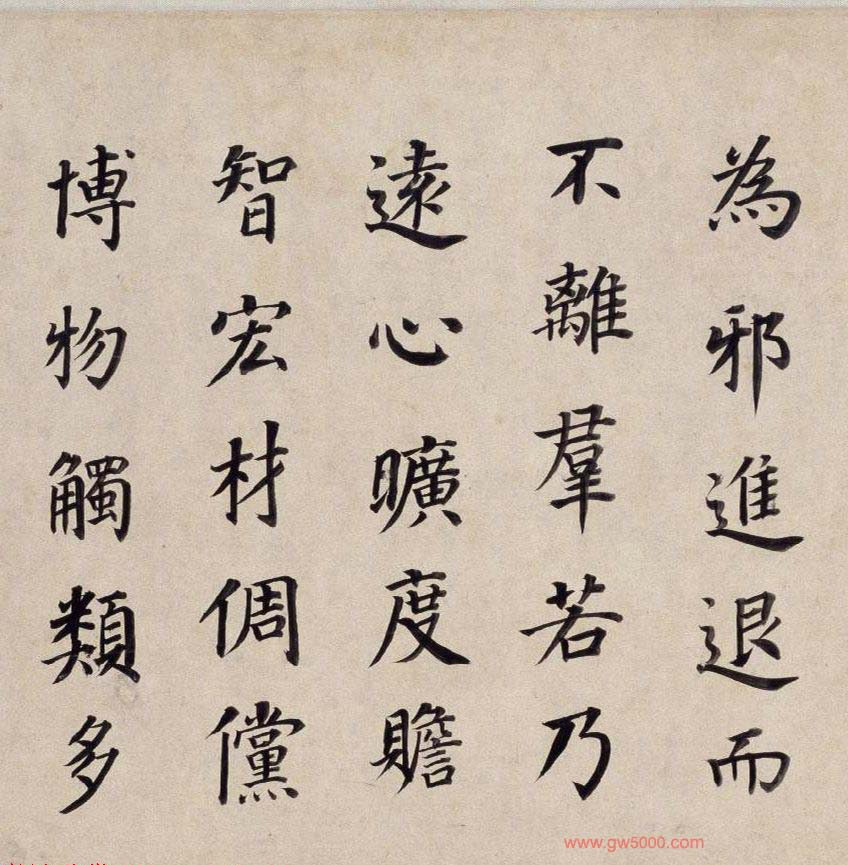 為邪進退而
不離羣若乃
遠心曠度贍
智宏材倜儻
博物觸類多
www.gw5000.com